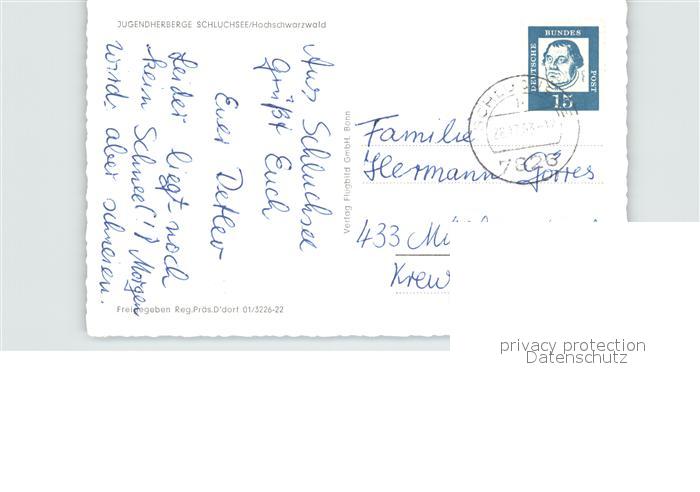 JUGENDHERBERGE SCHLUCHSEE/Hochschwarzwald
Aus Schluchsee
grüßt Euch
Euer Detlev
Leider liegt noch
kein Schnee! Morgen
wird's aber schneien.
Freigegeben Reg.Präs.D'dorf 01/3226-22
Verlag Flugbild GmbH. Bonn
DEUTSCHE
BUNDES
POST
15
7823
Familie
Hermann Görres
433 Mü
Krew
privacy protection
Datenschutz